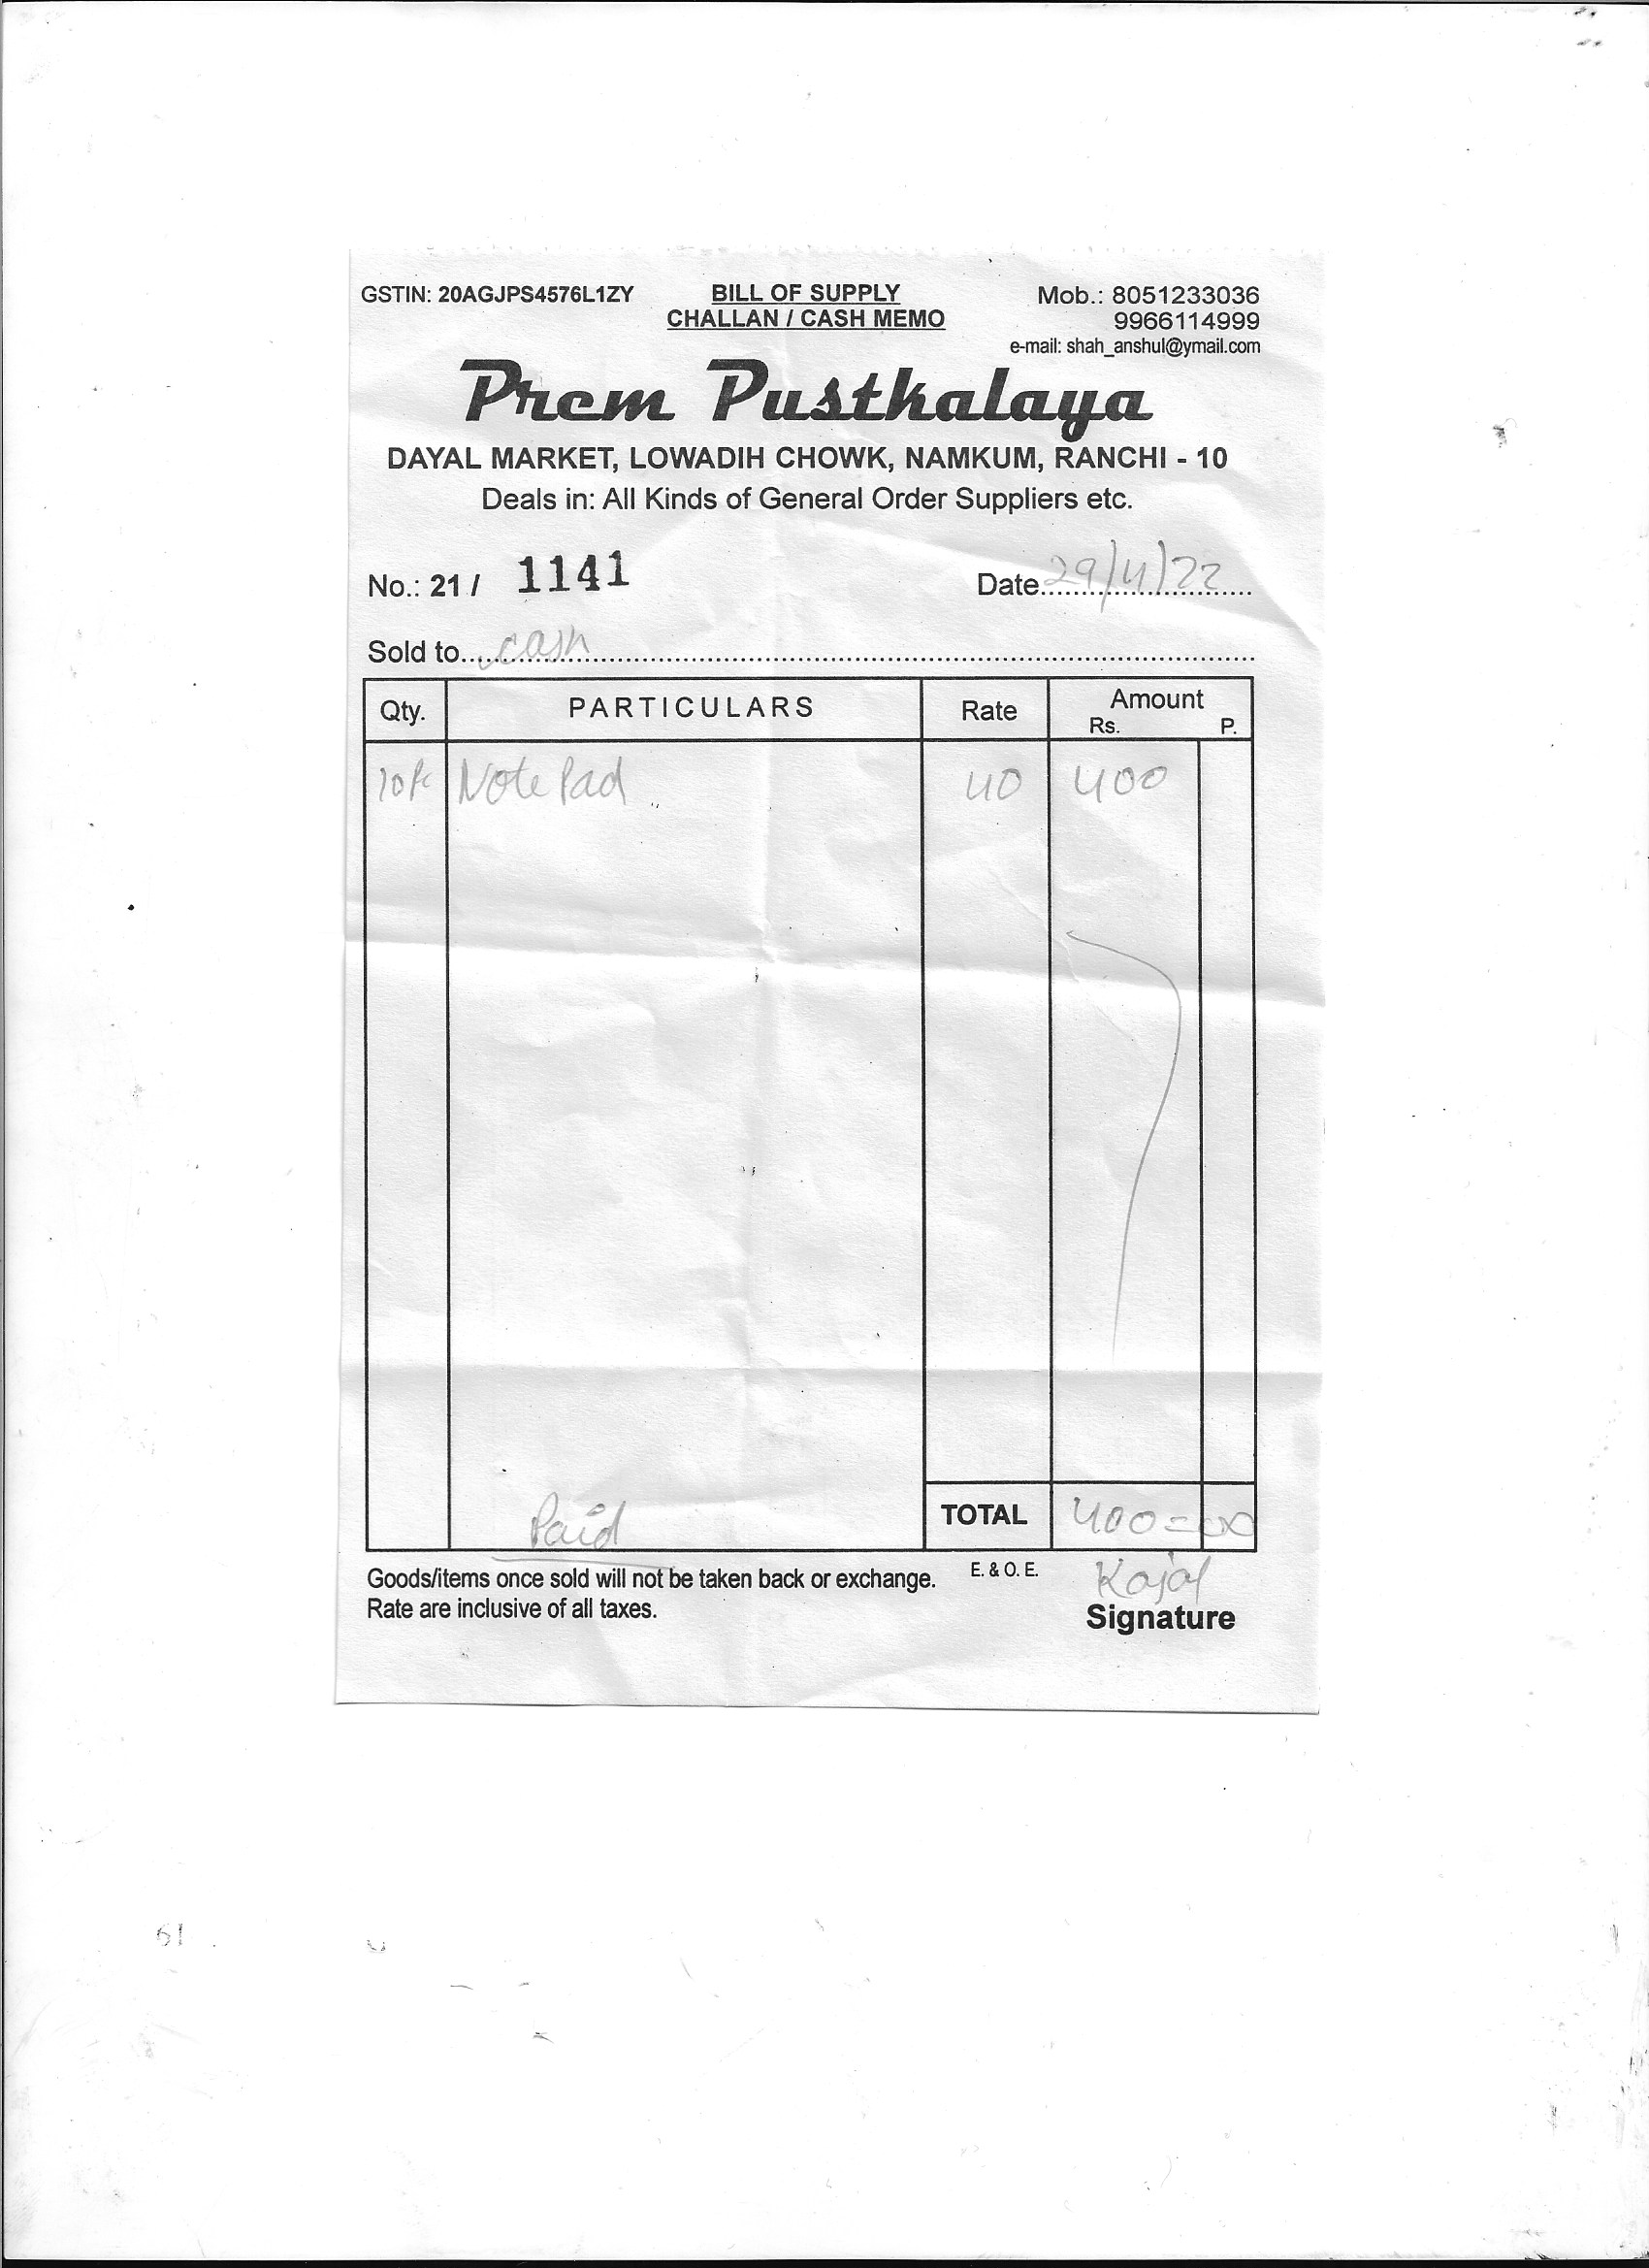 GSTIN: 20AGJPS4576L1ZY
BILL OF SUPPLY
CHALLAN / CASH MEMO
Mob.: 8051233036
9966114999
e-mail: shah_anshul@ymail.com
Prem Pusthalaya
DAYAL MARKET, LOWADIH CHOWK, NAMKUM, RANCHI - 10
Deals in: All Kinds of General Order Suppliers etc.
No.: 21 / 1141 Date 29/4/22
Sold to cash
Qty. PARTICULARS Rate Amount
Rs. P.
10 Pc Note Pad 40 400
Paid
TOTAL 400=00
Goods/items once sold will not be taken back or exchange. E. & O. E. Kajal
Rate are inclusive of all taxes. Signature
61